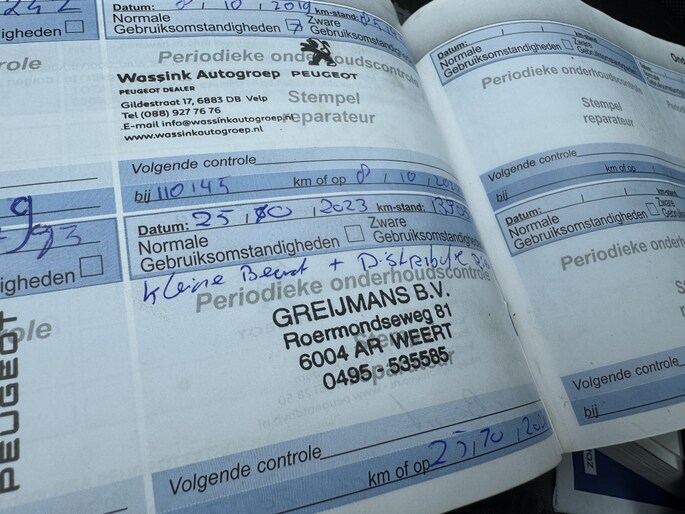 Datum: 8, 10, 2019 km-stand:
Normale
Gebruiksomstandigheden
Zware
Gebruiksomst
Periodieke onderhoudscontrole
Wassink Autogroep PEUGEOT
PEUGEOT DEALER
Gildestraat 17, 6883 DB Velp
Tel (088) 927 76 76
E-mail info@wassinkautogroep.nl
www.wassinkautogroep.nl
Stempel
reparateur
Volgende controle
bij 110145 km of op 8, 10, 20
Datum: 25, 10, 2023 km-stand:
Normale
Gebruiksomstandigheden
Zware
Gebruiksomstandigheden
Kleine Beurt + Distributie
Periodieke onderhoudscontrole
GREIJMANS B.V.
Roermondseweg 81
6004 AR WEERT
0495 - 535585
Stempel
reparateur
Volgende controle
km of op 25, 10, 20
role
igheden
role
PEUGEOT
Datum: km-stand:
Normale
Gebruiksomstandigheden
Zware
Gebruiksomstandigheden
Periodieke onderhoudscontrole
Stempel
reparateur
Volgende controle
bij km of op
Datum: km-stand:
Normale
Gebruiksomstandigheden
Zware
Gebruiksomst
Periodieke onderh
Stempel
reparateur
Volgende controle
bij